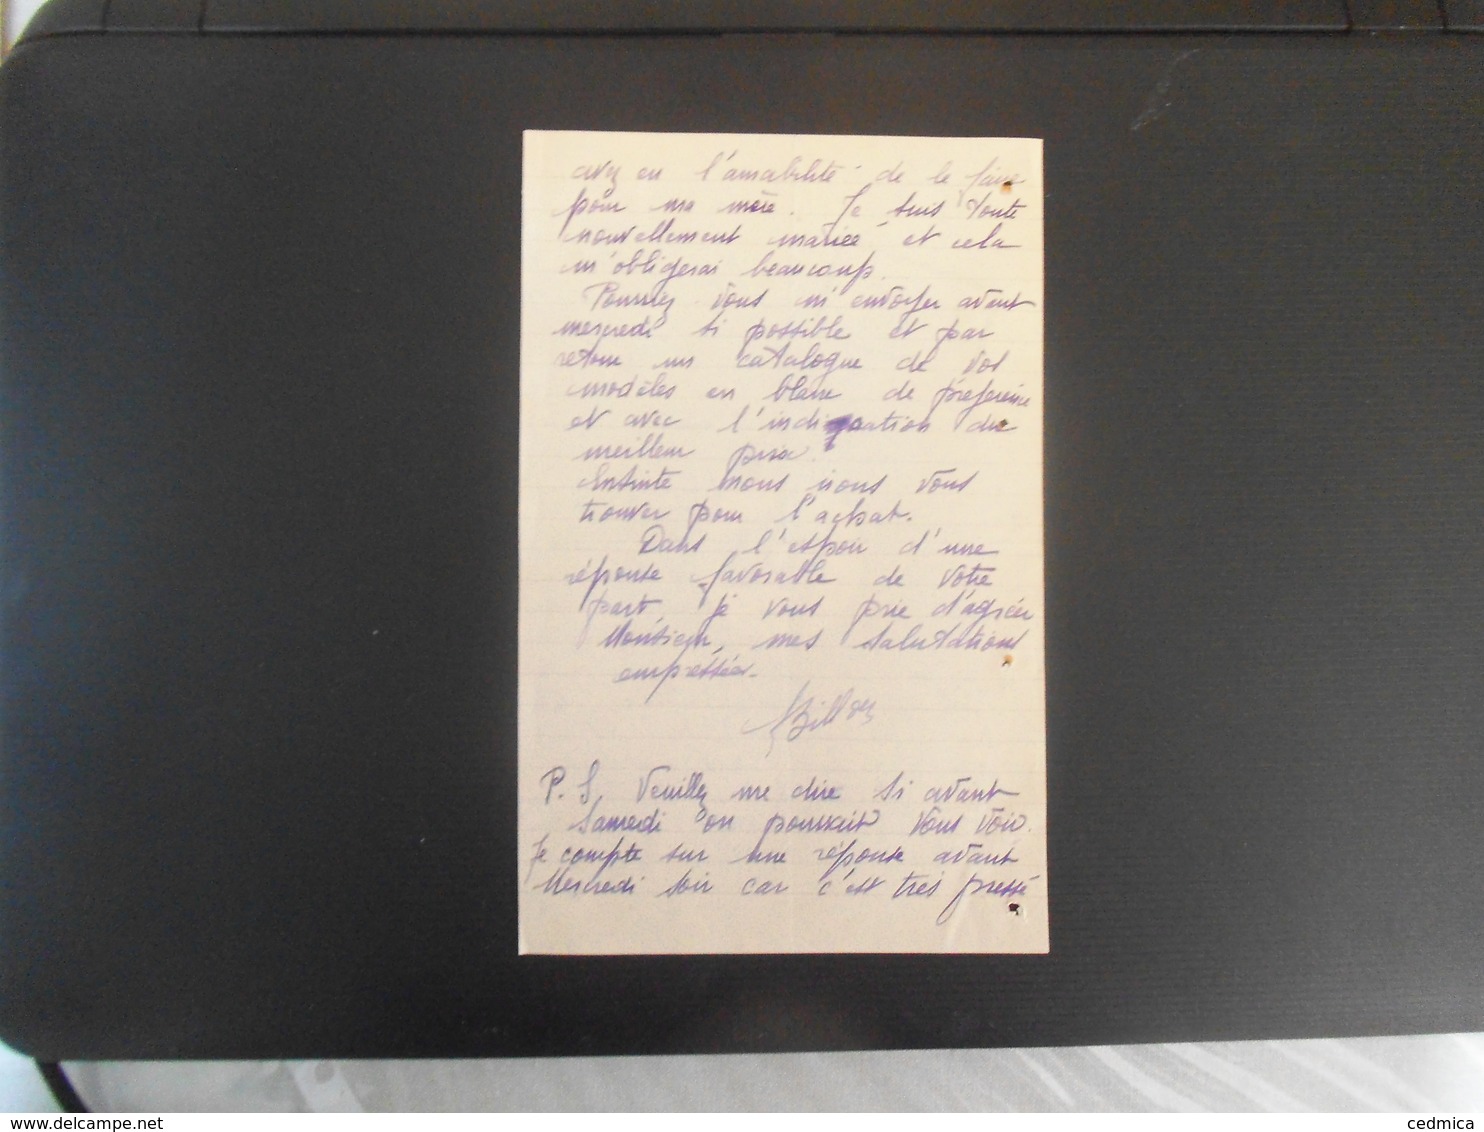 avez eu l'amabilité de le faire
pour ma mère. Je suis toute
nouvellement mariée et cela
m'obligerai beaucoup.
Pourriez-vous m'envoyer avant
mercredi si possible et par
retour un catalogue de vos
modèles en blanc de préférence
et avec l'indication du
meilleur prix.
Ensuite nous irons vous
trouver pour l'achat.
Dans l'espoir d'une
réponse favorable de votre
part, je vous prie d'agréer
Monsieur, mes salutations
empressées.
P.S. Veuillez me dire si avant
Samedi on pourrait vous voir.
Je compte sur une réponse avant
Mercredi soir car c'est très pressé
delcampe.net
cedmica